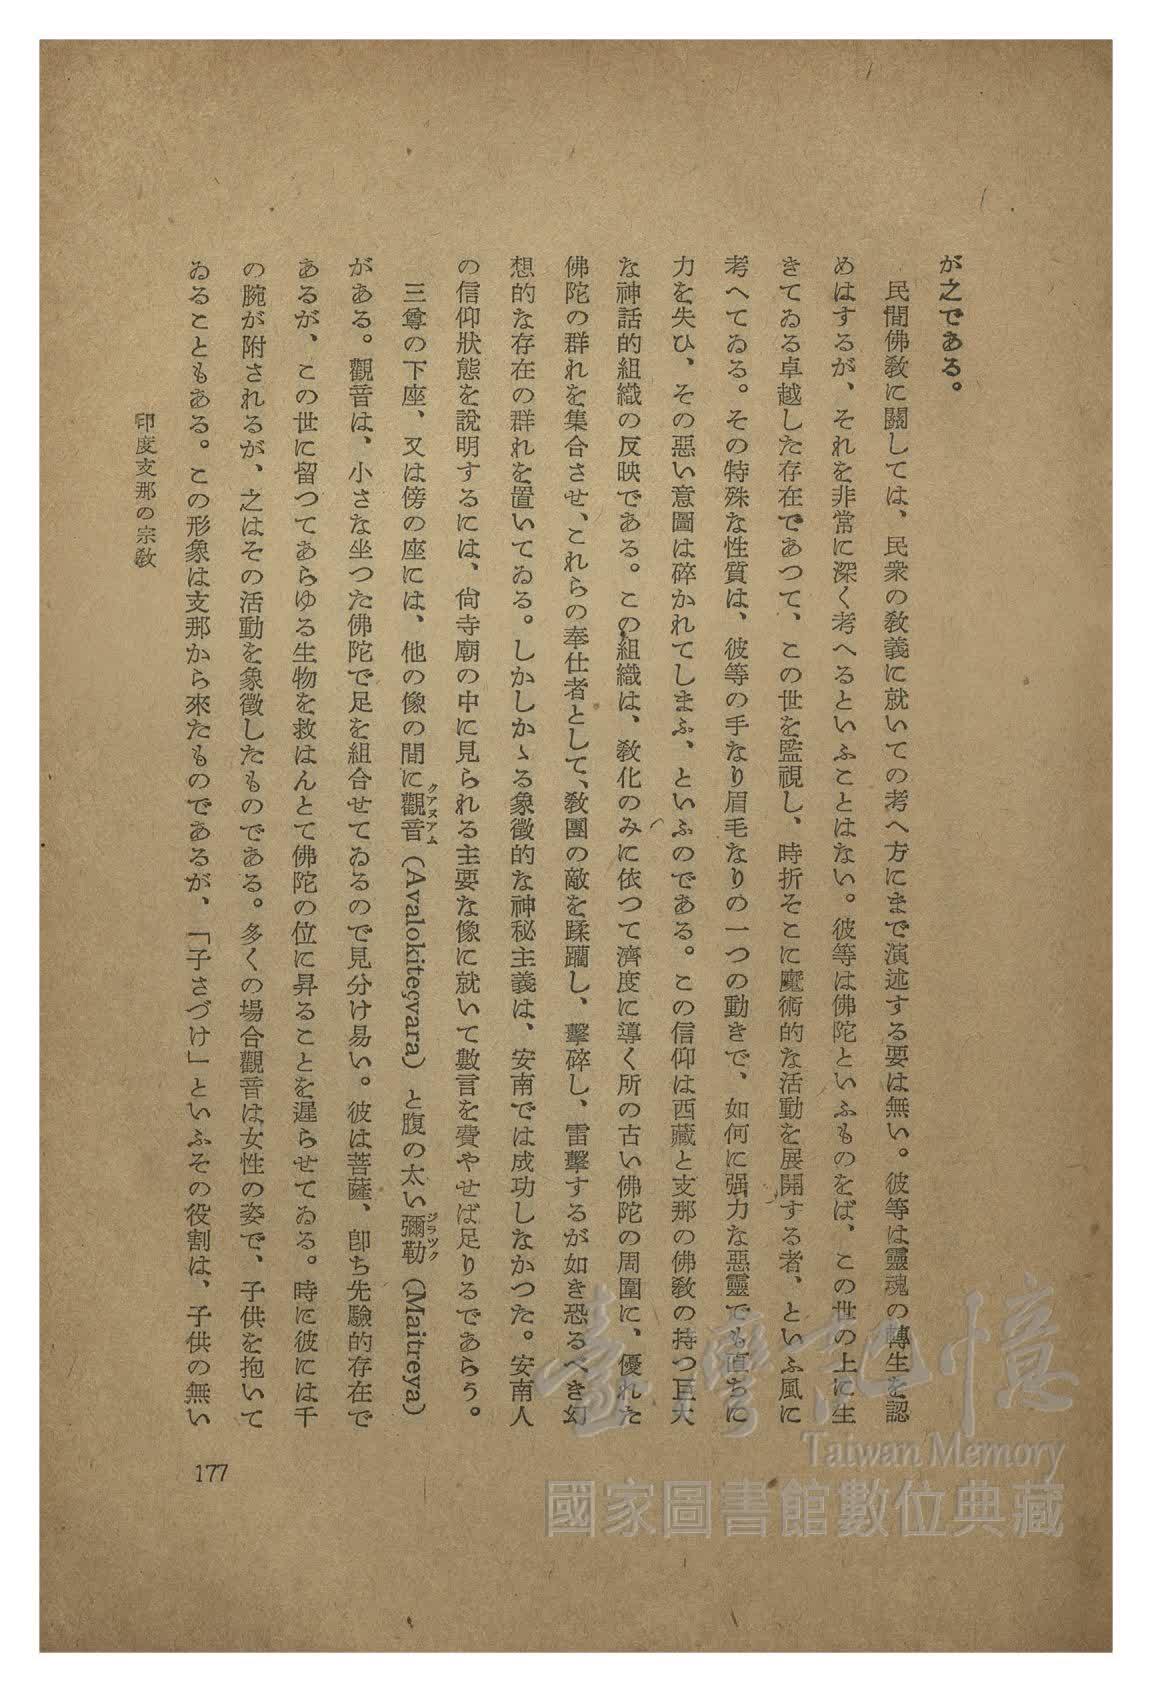 が之である。
民間佛敎に關しては、民衆の敎義に就いての考へ方にまで演述する要は無い。彼等は靈魂の轉生を認
めはするが、それを非常に深く考へるといふことはない。彼等は佛陀といふものをば、この世の上に生
きてゐる卓越した存在であつて、この世を監視し、時折そこに魔術的な活動を展開する者、といふ風に
考へてゐる。その特殊な性質は、彼等の手なり眉毛なりの一つの動きで、如何に强力な惡靈でも直ちに
力を失ひ、その惡い意圖は碎かれてしまふ、といふのである。この信仰は西藏と支那の佛敎の持つ巨大
な神話的組織の反映である。この組織は、敎化のみに依つて濟度に導く所の古い佛陀の周圍に、優れた
佛陀の群れを集合させ、これらの奉仕者として、敎團の敵を蹂躪し、擊碎し、雷擊するが如き恐るべき幻
想的な存在の群れを置いてゐる。しかしかゝる象徵的な神秘主義は、安南では成功しなかつた。安南人
の信仰狀態を說明するには、尙寺廟の中に見られる主要な像に就いて數言を費やせば足りるであらう。
三尊の下座、又は傍の座には、他の像の間に觀音クアヌアム（Avalokiteçvara）と腹の太い彌勒ジラツク（Maitreya）
がある。觀音は、小さな坐つた佛陀で足を組合せてゐるので見分け易い。彼は菩薩、卽ち先驗的存在で
あるが、この世に留つてあらゆる生物を救はんとて佛陀の位に昇ることを遲らせてゐる。時に彼には千
の腕が附されるが、之はその活動を象徵したものである。多くの場合觀音は女性の姿で、子供を抱いて
ゐることもある。この形象は支那から來たものであるが、「子さづけ」といふその役割は、子供の無い
印度支那の宗敎
177
臺灣記憶
Taiwan Memory
國家圖書館數位典藏